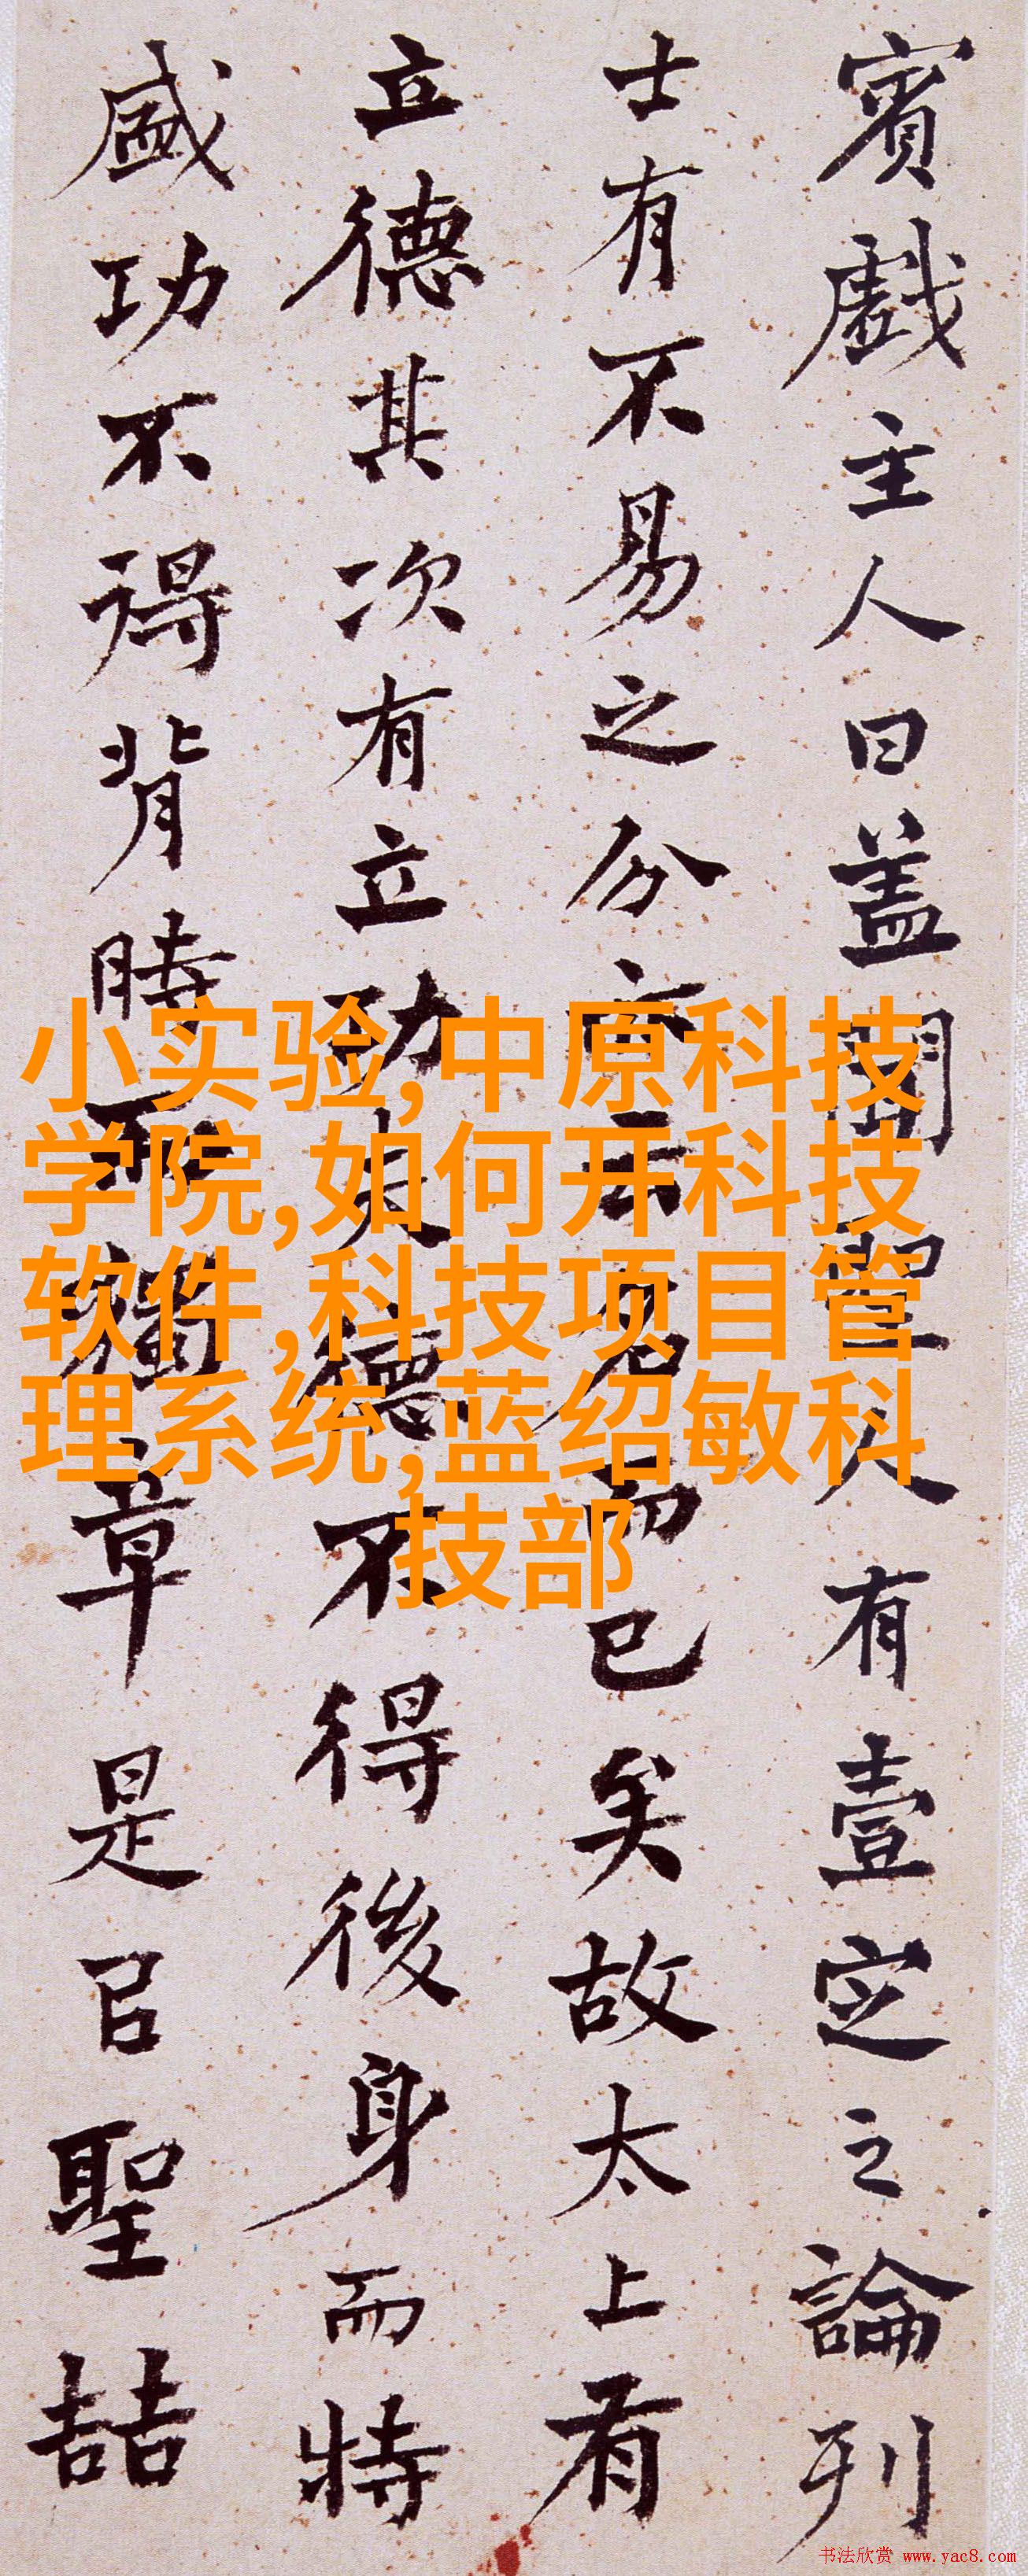 賓戲主人曰蓋聞聖人有壹定之論列
士有不易之分亦云名而已矣故太上有
立德其次有立功夫德不得後身而特
盛功不得背時而獨章是㠯聖喆
小实验,中原科技
学院,如何开科技
软件,科技项目管
理系统,蓝绍敏科
技部
书法欣赏 www.yac8.com